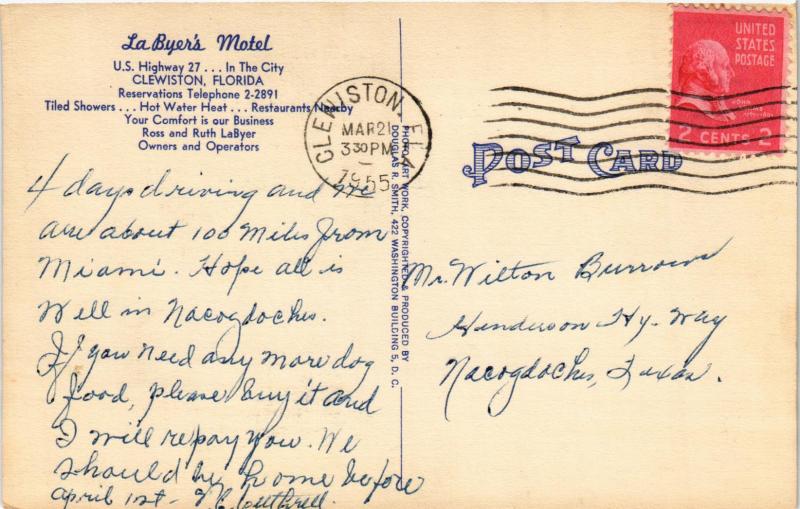 La Byer's Motel
U.S. Highway 27 ... In The City
CLEWISTON, FLORIDA
Reservations Telephone 2-2891
Tiled Showers ... Hot Water Heat ... Restaurants Nearby
Your Comfort is our Business
Ross and Ruth LaByer
Owners and Operators
4 days driving and we
are about 100 Miles from
Miami. Hope all is
Well in Nacogdoches.
If you need any more dog
food, please buy it and
I will repay you. We
should be home before
April 1st -
COPYRIGHTED & PRODUCED BY
DOUGLAS R. SMITH, 422 WASHINGTON BUILDING 5, D. C.
CLEWISTON, FLA
MAR 21
3 30 PM
1955
UNITED
STATES
POSTAGE
JOHN
2 CENTS 2
POST CARD
Mr. Wilton Burrows
Henderson Hy-Way
Nacogdoches, Texas.